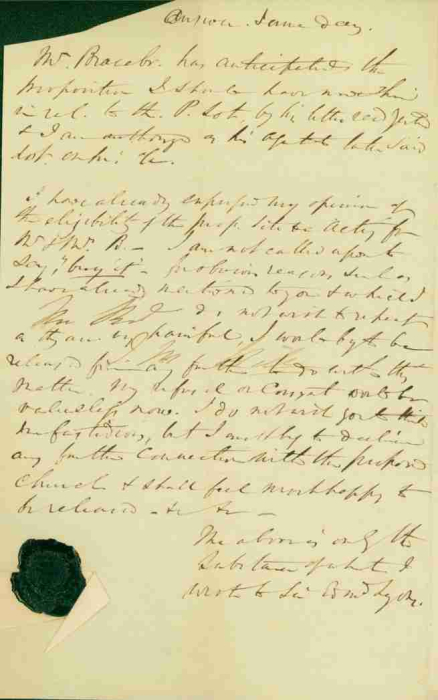 Answer same day.
Mr. Bracebr. has anticipated the
proposition I should have made him
in rel. to the P. lot, by his letter recd
& I am as his agent to take said
lot. on his
I have already expressed my opinion of
the eligibility of the prop. site &c acting for
Mr & Mrs. B. - I am not called upon to
say, "buy it" - for obvious reasons such as
I have already mentioned to you & which I
do not wish to repeat
painful, I would beg to be
released from any further to do with this
matter. My refusal or consent would be
valueless now. I do not wish you to think
me fastidious, but I must beg to decline
any further connection with the proposed
Church & shall feel most happy to
be released - &c &c -
The above is only the
substance of what I
wrote to Sir Edmd Lyons.